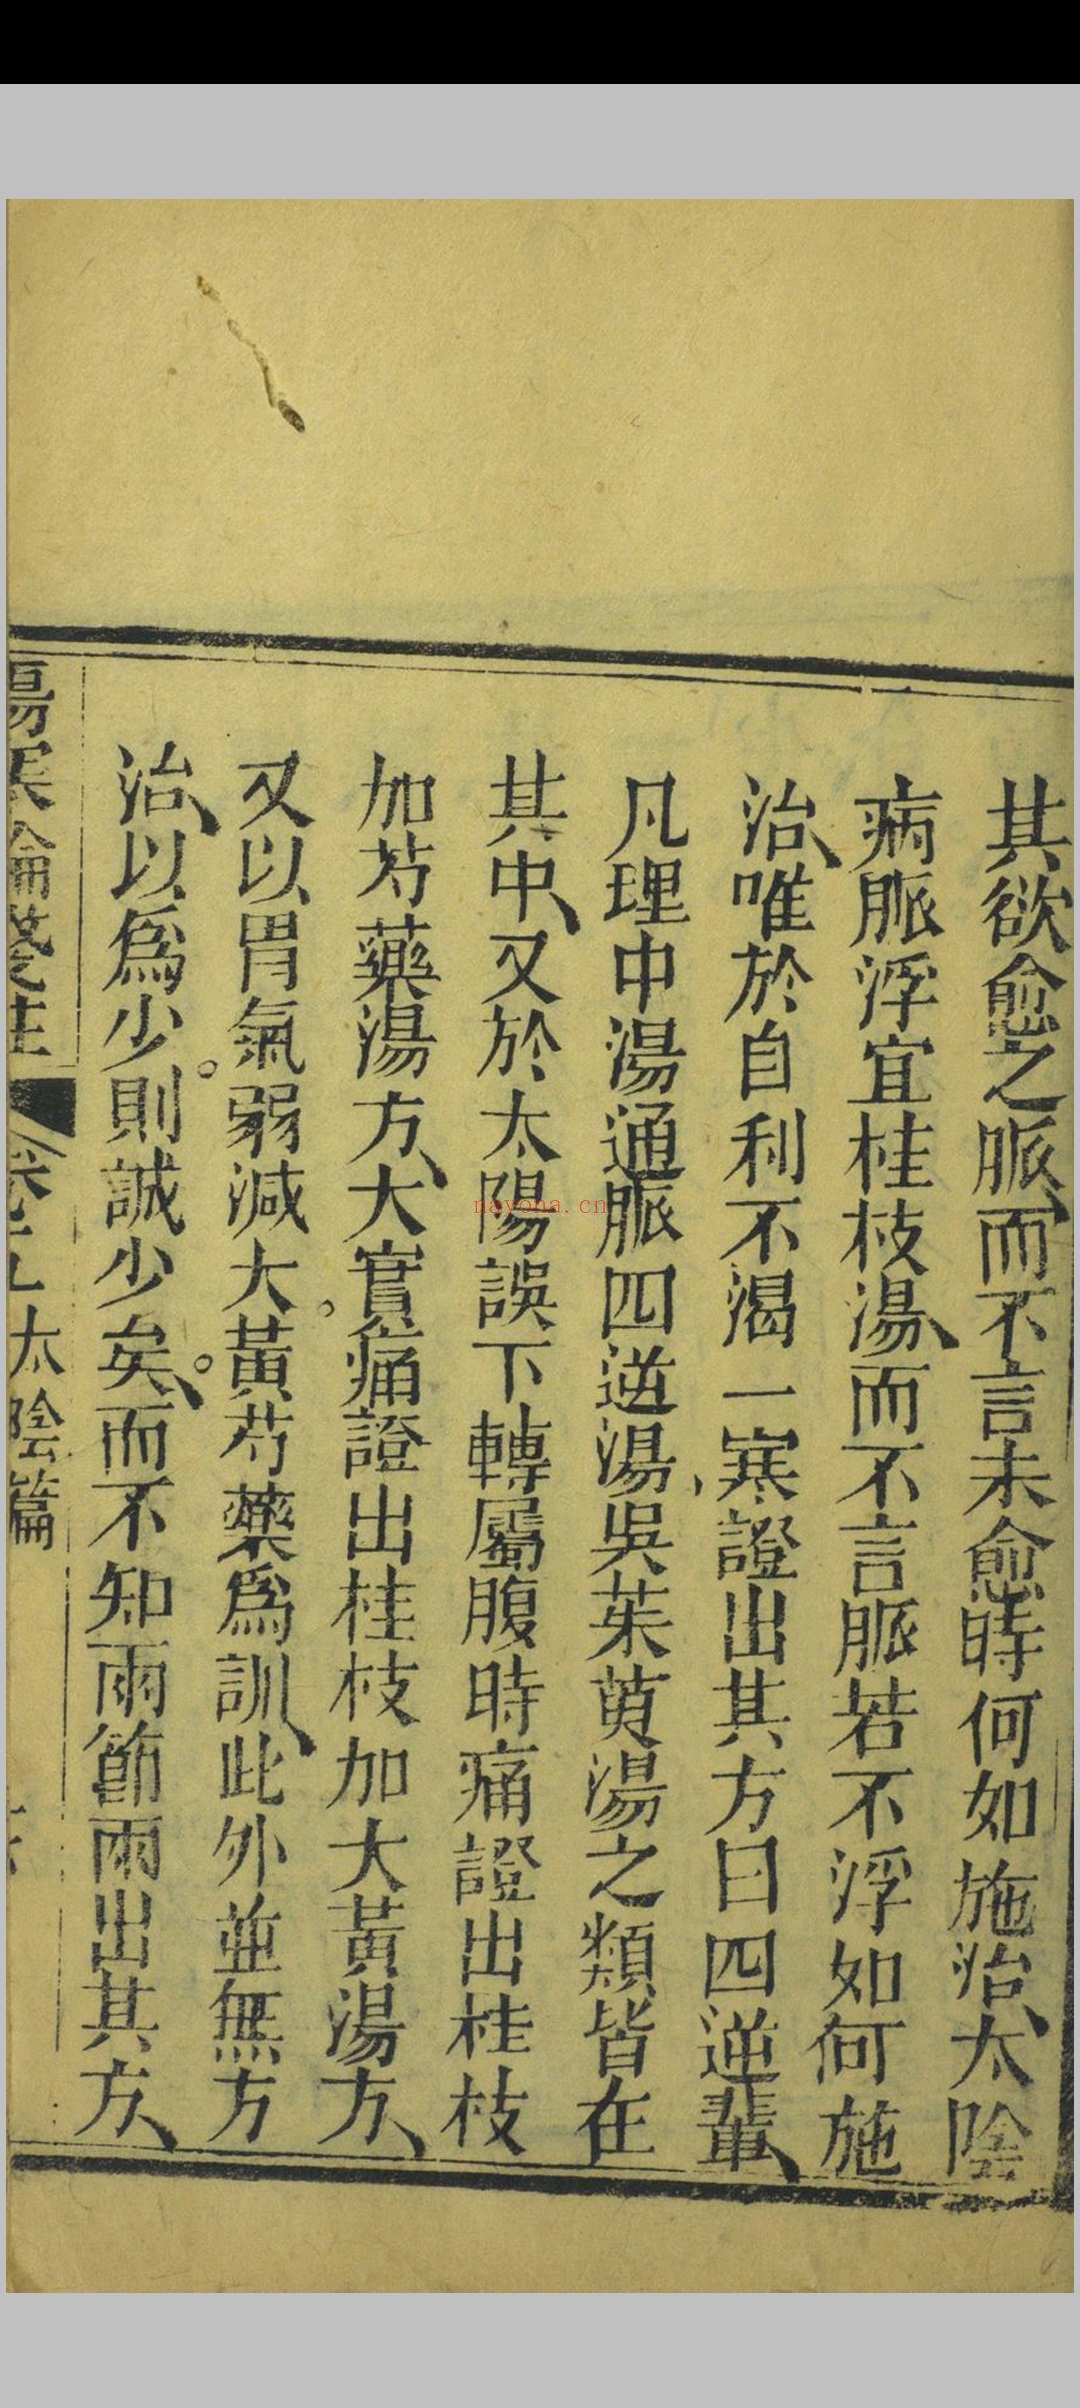 其欲愈之脈而不言未愈時何如施治太陰
病脈浮宜桂枝湯而不言脈若不浮如何施
治唯於自利不渴一寒證出其方曰四逆輩
凡理中湯通脈四逆湯吳茱萸湯之類皆在
其中又於太陽誤下轉屬腹時痛證出桂枝
加芍藥湯方大實痛證出桂枝加大黃湯方
又以胃氣弱減大黃芍藥爲訓此外並無方
治以爲少則誠少矣而不知兩節兩出其方
傷寒論淺註 卷五 太陰篇
nayona.cn